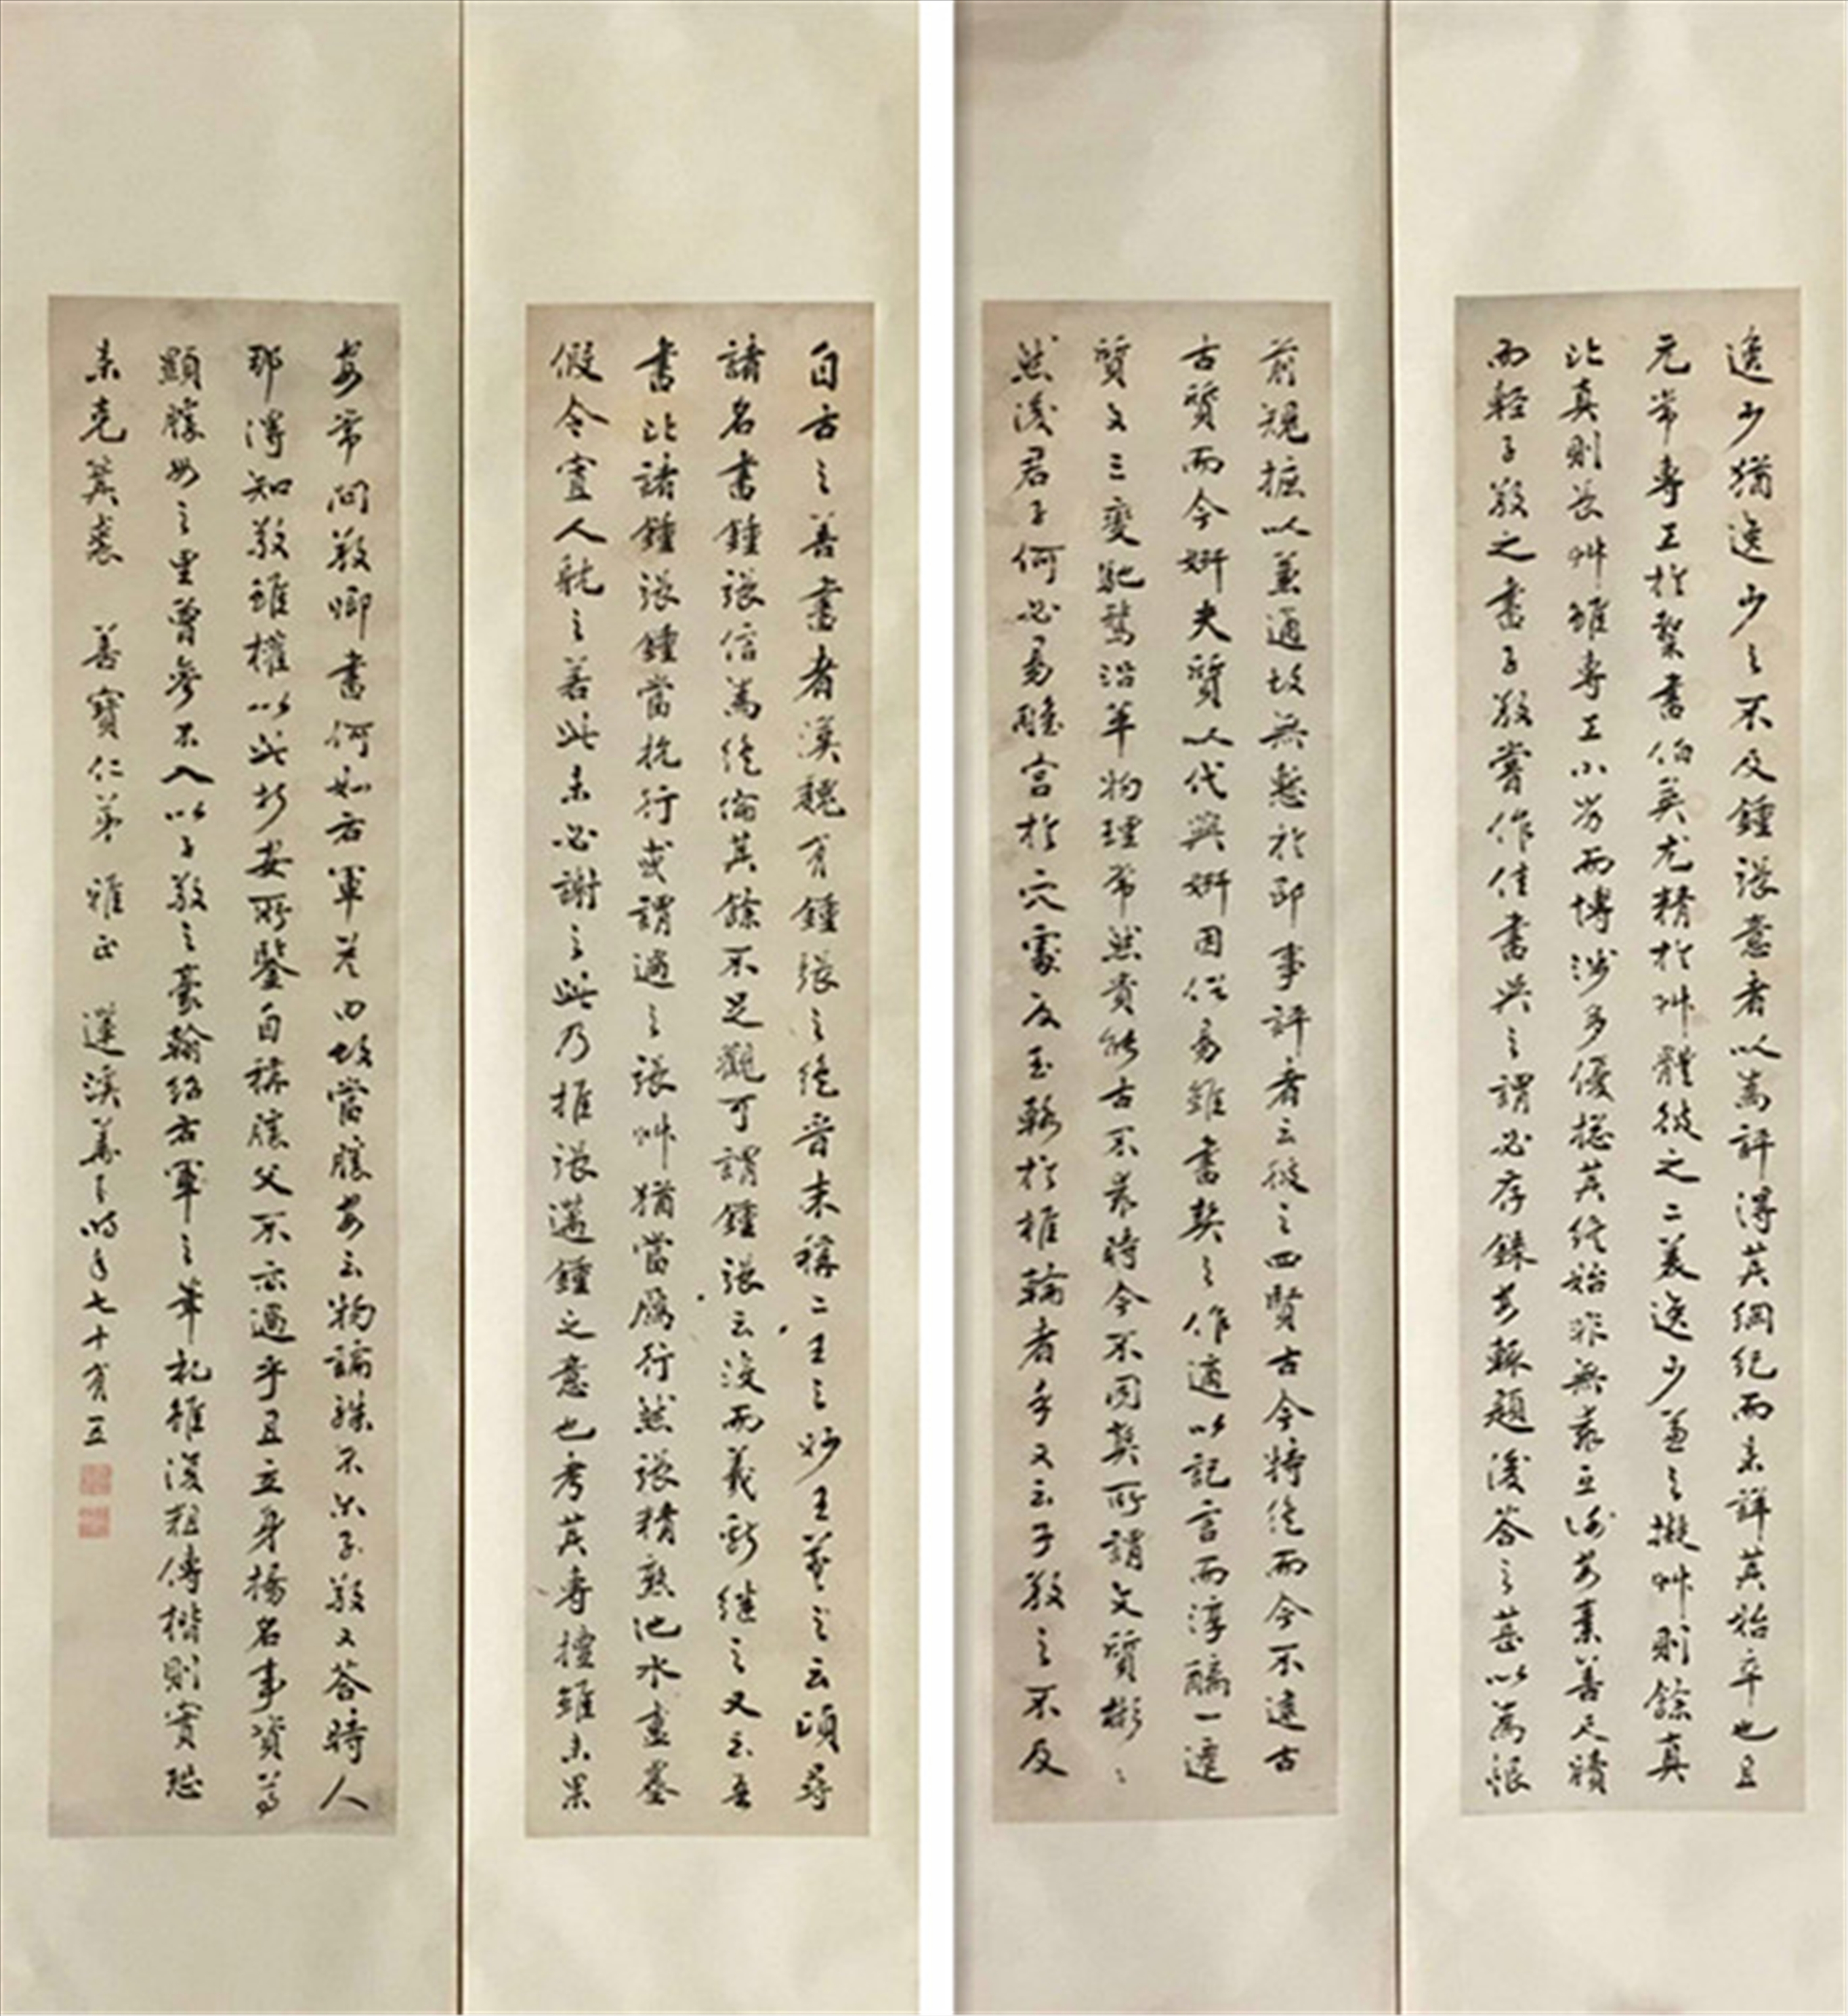 自古之善書者漢魏有鍾張之絕晉末稱二王之妙王羲之云頃尋
諸名書鍾張信為絕倫其餘不足觀可謂鍾張云沒而羲獻繼之又云吾
書比諸鍾張鍾當抗行或謂過之張艸猶當鴈行然張精熟池水盡墨
假令寡人耽之若此未必謝之此乃推張邁鍾之意也考其專擅雖未果
前規摭以兼通故無慙於即事評者云彼之四賢古今特絕而今不逮古
古質而今妍夫質以代興妍因俗易雖書契之作適以記言而淳醨一遷
質文三變馳騖沿革物理常然貴能古不乖時今不同弊所謂文質彬〻
然後君子何必易雕宮於穴處反玉輅於椎輪者乎又云子敬之不及
逸少猶逸少之不及鍾張意者以為評得其綱紀而未詳其始卒也且
元常專工於隸書伯英尤精於艸體彼之二美逸少兼之擬艸則餘真
比真則長艸雖專工小劣而博涉多優揔其終始非無乖互謝安素善尺牘
而輕子敬之書子敬嘗作佳書與之謂必存錄安輒題後答之甚以為恨
安常問敬卿書何如右軍答曰故當勝安云物論殊不爾子敬又答時人
那得知敬雖權以此折安所鑒自稱勝父不亦過乎且立身揚名事資尊
顯勝母之里曾參不入以子敬之豪翰紹右軍之筆札雖復粗傳楷則實恐
未克箕裘 善寶仁弟 雅正 蓮溪 時年七十有五